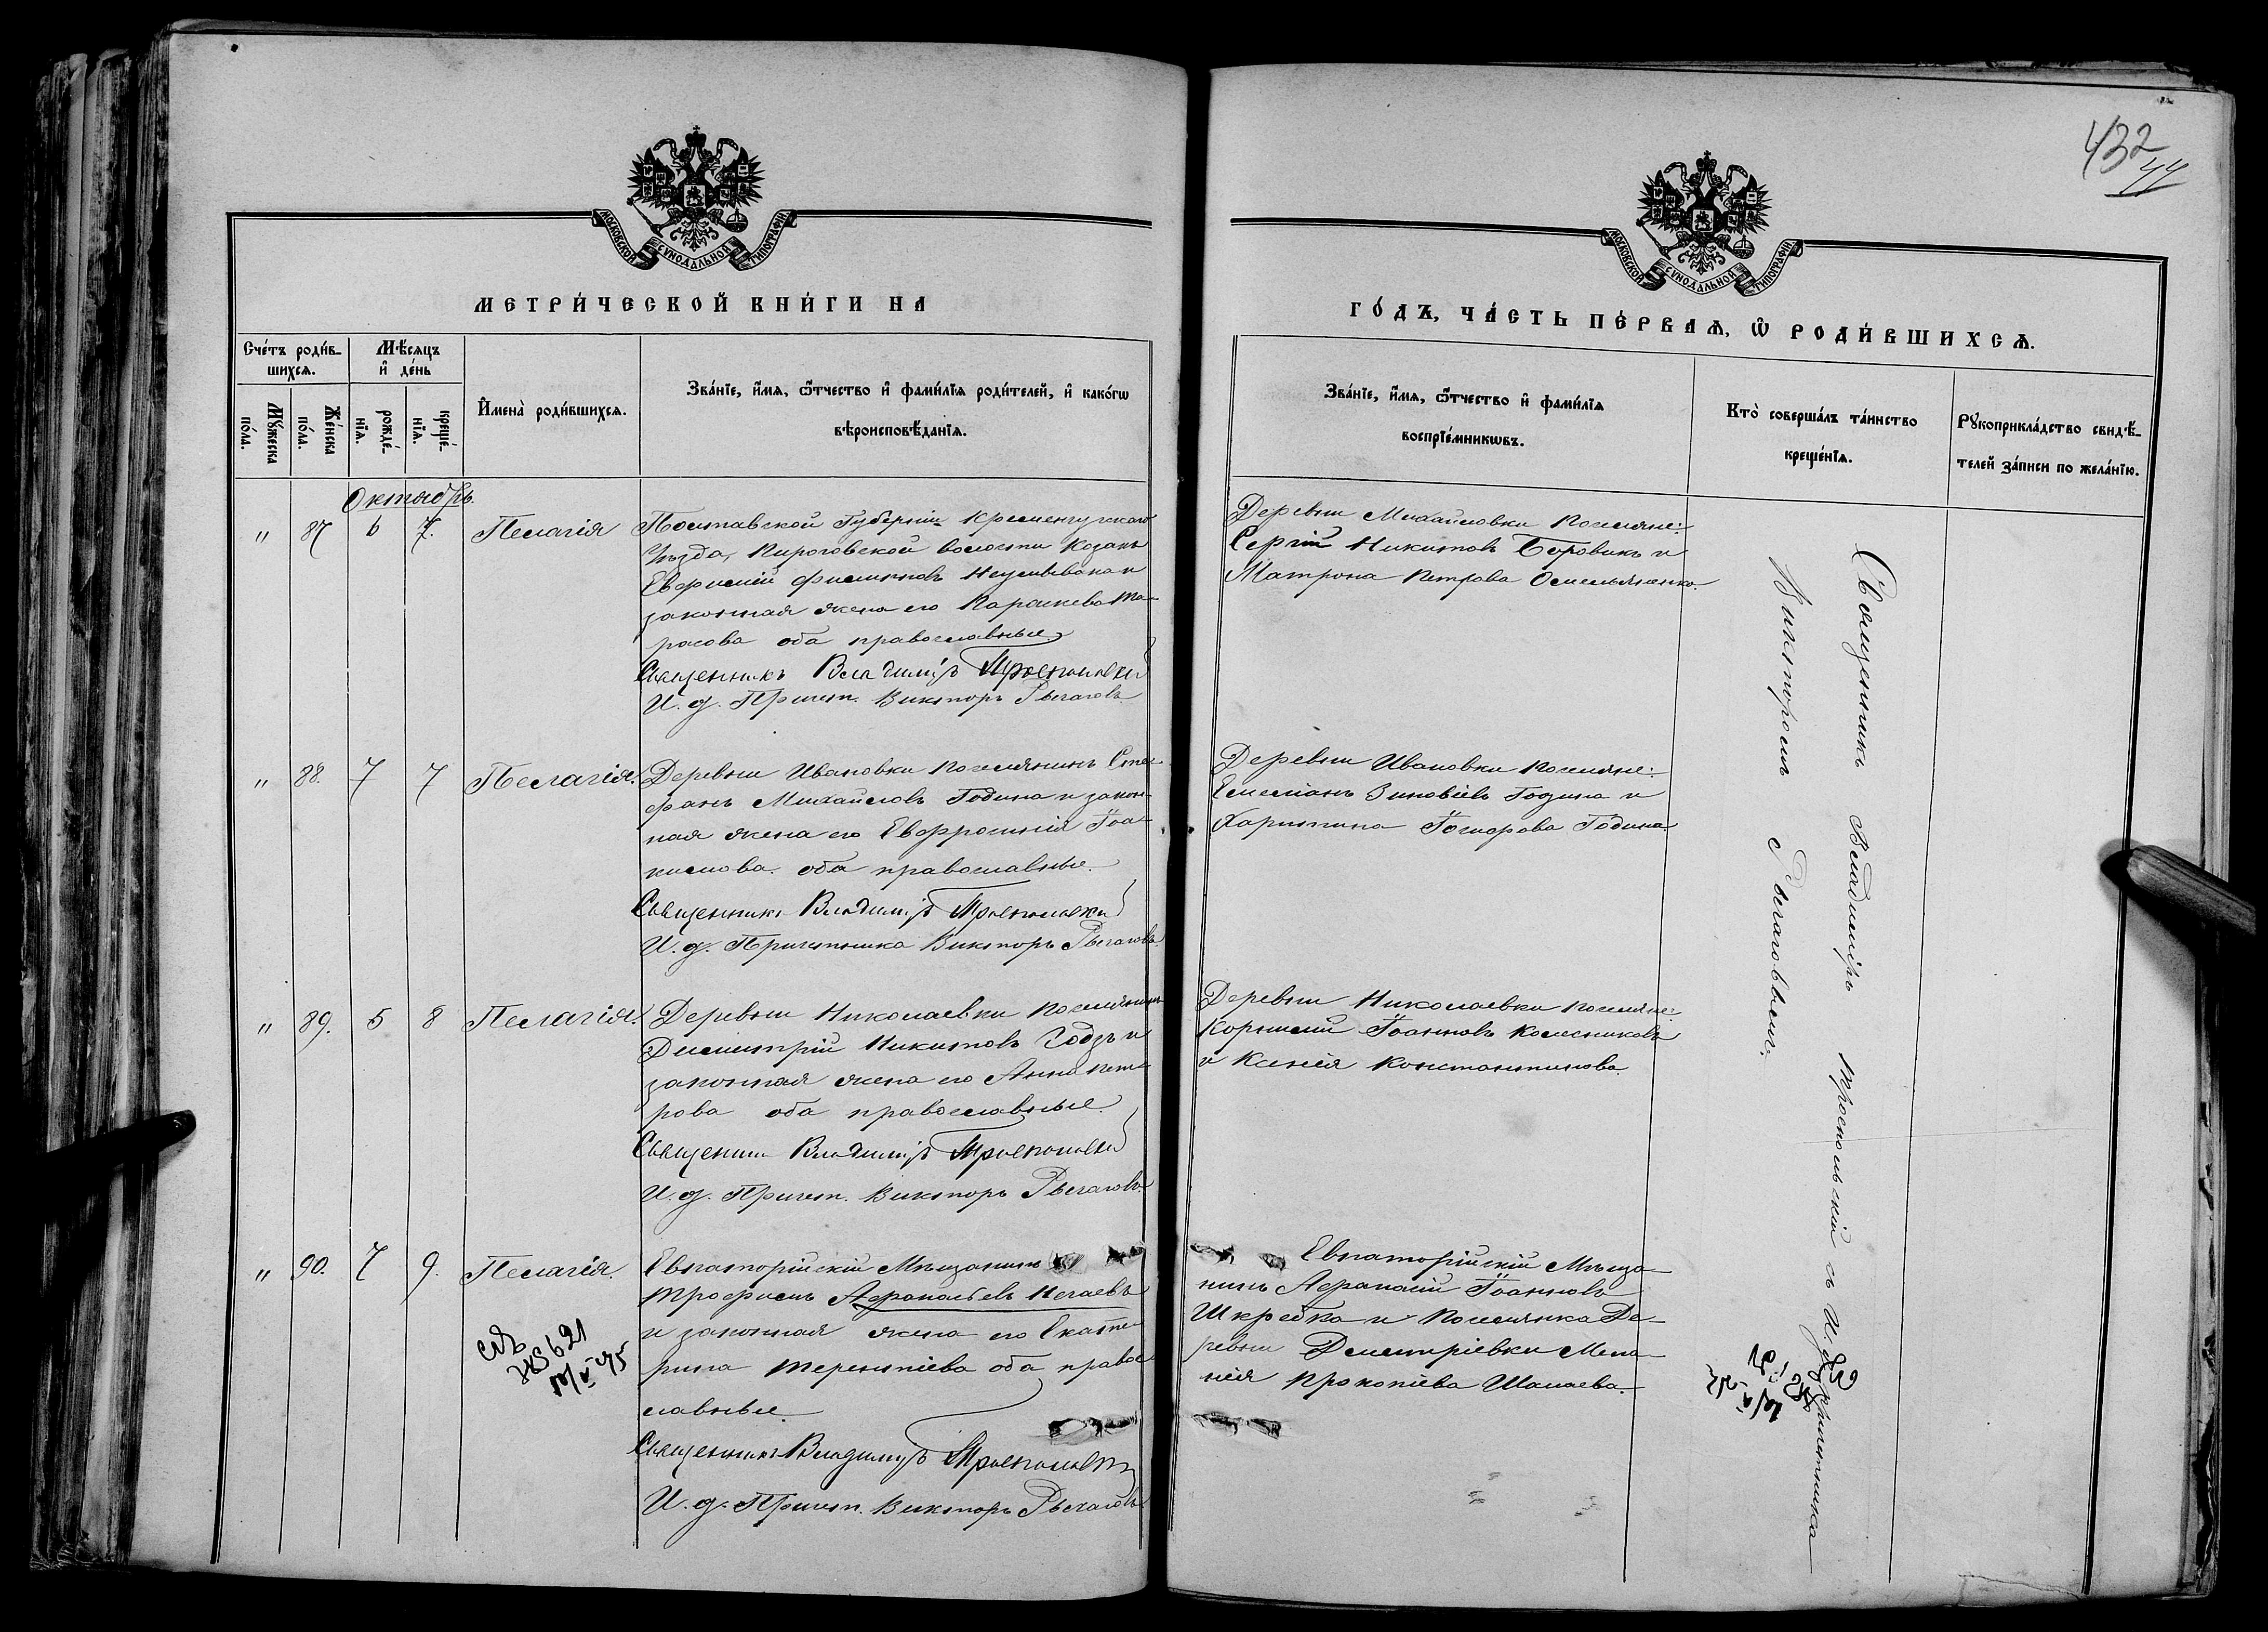 432
44
МОСКОВСКОЙ СѴНОДАЛЬНОЙ ТИПОГРАФІИ
МОСКОВСКОЙ СѴНОДАЛЬНОЙ ТИПОГРАФІИ
МЕТРИ́ЧЕСКОЙ КНИ́ГИ НА
ГО́ДЪ, ЧА́СТЬ ПЕ́РВАѦ, Ѡ҆ РОДИ́ВШИХСѦ.
Сче́тъ роди́в-
шихсѧ.
Мꙋ́жеска по́ла.
Же́нска по́ла.
Мѣ́сѧцъ
и҆ де́нь
рожде́-
нїѧ.
креще́-
нїѧ.
И҆мена̀ роди́вшихсѧ.
Зва́нїе, и҆́мѧ, ѻ҆́тчество и҆ фами́лїѧ роди́телей, и҆ како́гѡ
вѣроисповѣ́данїѧ.
Зва́нїе, и҆́мѧ, ѻ҆́тчество и҆ фами́лїѧ
воспрїе́мникѡвъ.
Кто̀ соверша́лъ та́инство
креще́нїѧ.
Рꙋкоприкла́дство свидѣ́-
телей за́писи по жела́нїю.
Октябрь.
" 87 6 7. Пелагія
Полтавской Губерніи Кременчугскаго
Уѣзда, Пироговской волости Козакъ
Евфимій Филиповъ
законная жена его Параскева Та-
расова оба православные
Священникъ Владимiръ Троепольскій
И. д. Причет. Викторъ Рычаговъ
Деревни Михайловки поселяне:
Сергій Никитовъ Боровикъ и
Матрона Петрова Омельяненко.
" 88. 7 7 Пелагія.
Деревни Ивановки поселянинъ Сте-
фанъ Михайловъ Година и закон-
ная жена его Евфросинія Іоа-
кимова. оба православные.
Священникъ Владимiръ Троепольскій
И. д. Причетника Викторъ Рычаговъ
Деревни Ивановки поселяне:
Емеліанъ Зиновіевъ Година и
Харитина Година
" 89. 5 8 Пелагія.
Деревни Николаевки поселянинъ
Димитрій Никитовъ и
законная жена его Анна Пет-
рова оба православные.
Священникъ Владимiръ Троепольскій
И. д. Причет. Викторъ Рычаговъ.
Деревни Николаевки поселяне:
Корнилій Іоанновъ Колесниковъ
и Ксенія Константинова.
" 90. 7 9. Пелагія.
Евпаторійскій Мѣщанинъ
Трофимъ Афанасьевъ Нечаевъ
и законная жена его Екате-
рина Терентіева оба право-
славные.
Священникъ Владимiръ Троепольскій
И. д. Причет. Викторъ Рычаговъ
Евпаторійскій Мѣща-
нинъ Афанасій Іоанновъ
Шкребка и поселянка Де-
ревни Димитріевки Мела-
нія Прокопіева Шалаева.
Священникъ Владиміръ Троепольскій съ И. д. причетника
Викторомъ Рычаговымъ.